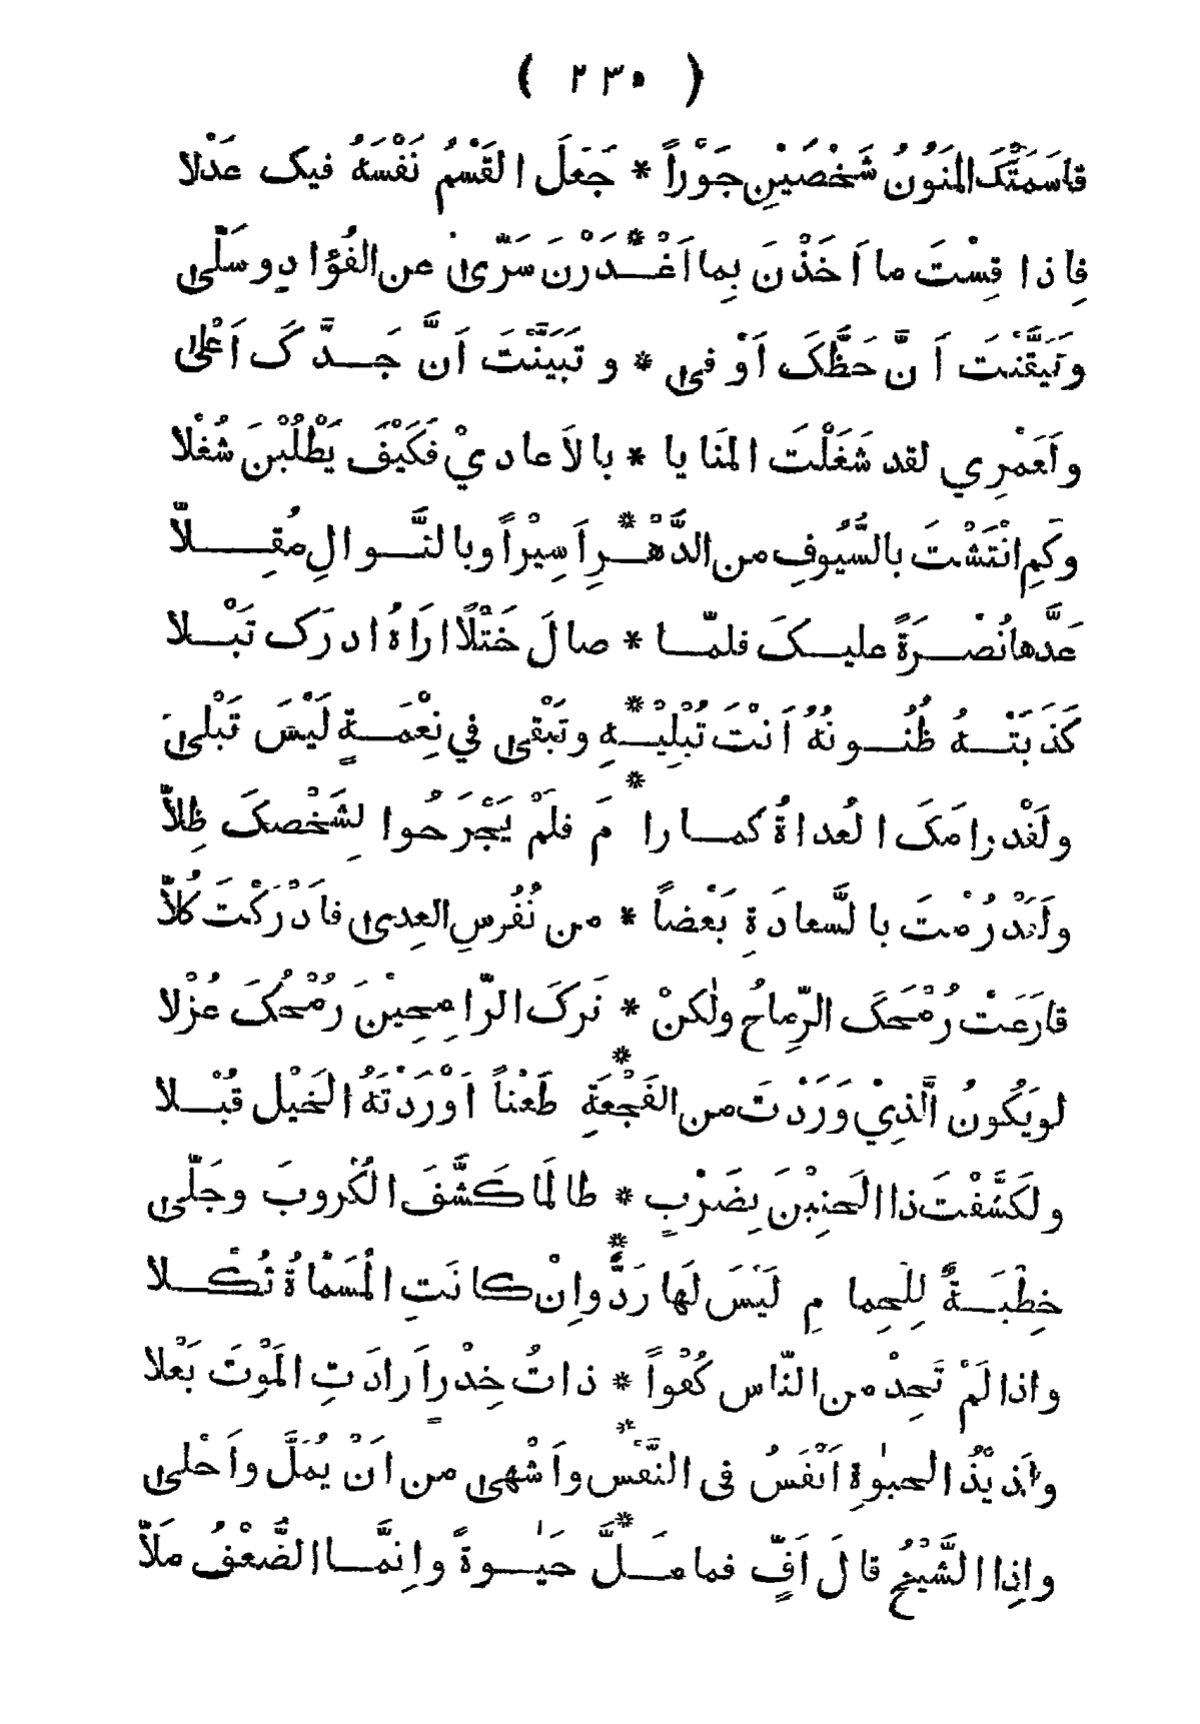 ( ٢٣٥ )
قاسَمَتْكَ المَنُونُ شَخْصَيْنِ جَوْراً * جَعَلَ القَسْمُ نَفْسَهُ فيك عَدْلا
فاِذا قِسْتَ ما اَخَذْنَ بِما اَغْـــدَرْنَ * سَرّى عن الفُؤادِ وسَلّى
وتَيَقَّنْتَ اَنَّ حَظَّكَ اَوْفى * وتَبَيَّنْتَ اَنَّ جَـــدَّكَ اَعْلى
ولَعَمْرِي لقد شَغَلْتَ المَنايا * بالاَعاديْ فَكَيْفَ يَطْلُبْنَ شُغْلا
وكَمِ انْتَشْتَ بالسُّيُوفِ من الدَّهْـــرِ * اَسِيْراً وبالنَّـــوالِ مُقِـــلّا
عَدَّها نُصْـــرَةً عليـــكَ فلمّـــا * صالَ خَتْلًا ارَاهُ ادرَك تَبْـــلا
كَذَبَتْـــهُ ظُنُـــونُهُ اَنْتَ تُبْلِيْـــهِ * وتَبْقى في نِعْمَـــةٍ لَيْسَ تَبْلى
ولَقْد رامَكَ العُداةُ كمـــا را * مَ فلَمْ يَجْرَحُوا لِشَخْصكَ ظِلاّ
ولَقَدْ رُمْتَ بالسَّعادَةِ بَعْضاً * من نُفُوسِ العِدى فادْرَكْتَ كُلاّ
قارَعَتْ رُمْحَكَ الرِّماحُ ولٰكنْ * تَركَ الرّامِحِيْنَ رُمْحُكَ عُزْلا
لو يَكُونُ الَّذِيْ وَرَدْتَ من الفَجْعَةِ * طَعْناً اَوْرَدْتَهُ الخَيْل قُبْـــلا
ولكَشَّفْتَ ذا الحَنِيْنَ بِضَرْبٍ * طالَما كَشَّفَ الكُروبَ وجَلّى
خِطْبَـــةٌ لِلْحِمامِ لَيْسَ لَها رَدٌّ * وإنْ كانَتِ المُسَمْاةُ ثُكْـــلا
واذا لَمْ تَجِدْ من النّاس كُفْواً * ذاتُ خِدْرٍ اَرادَتِ المَوْتَ بَعْلا
ولَذيْذُ الحيٰوةِ اَنْفَسُ فى النَّفْس * واَشْهى من اَنْ يُمَلَّ واَحْلى
واِذا الشَّيْخُ قالَ اَفٍّ فما مَـــلَّ * حَيٰـــوةً واِنَّمـــا الضُّعْفُ مَلّا